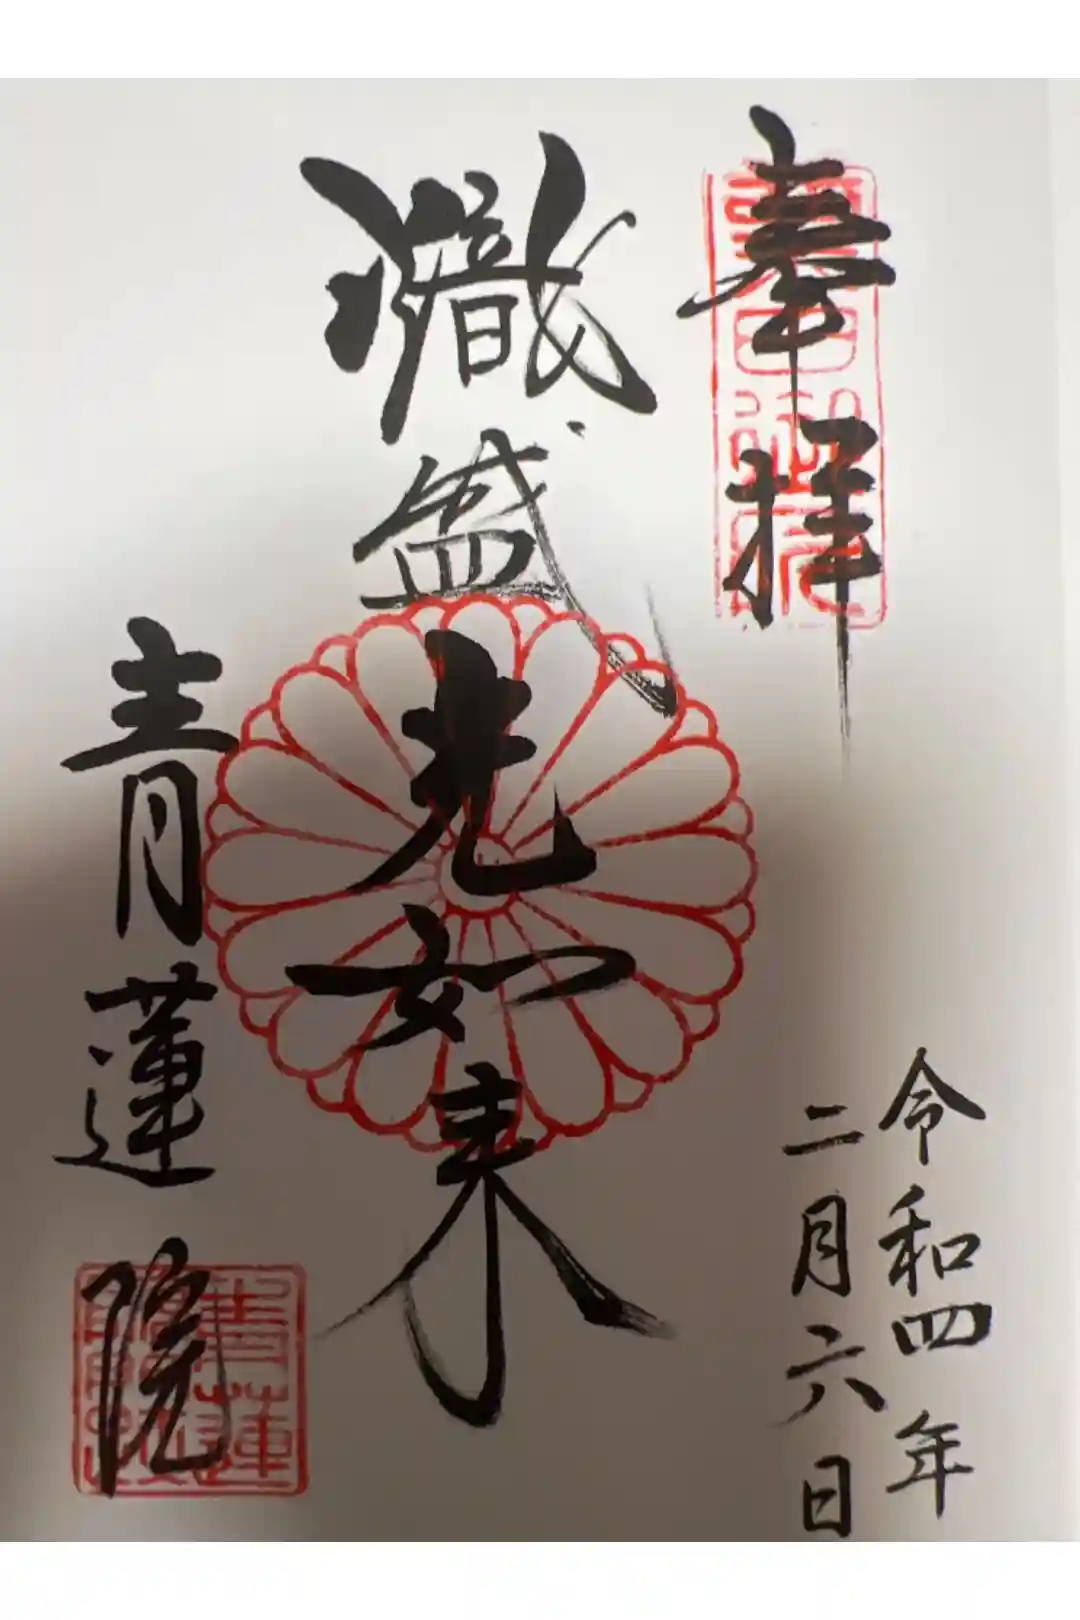 奉拝
令和四年
二月六日
熾盛光如来
青蓮院